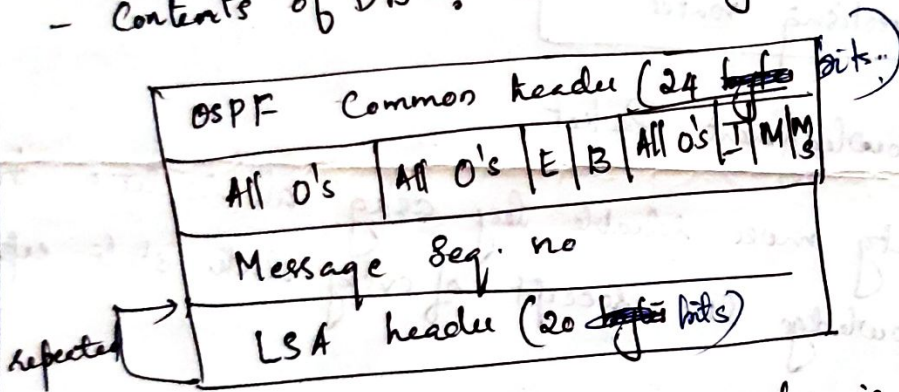 - Contents of DB :
OSPF Common header (24 bits)
All 0's All 0's E B All 0's I M MS
Message Seq. no
repeated LSA header (20 bits)